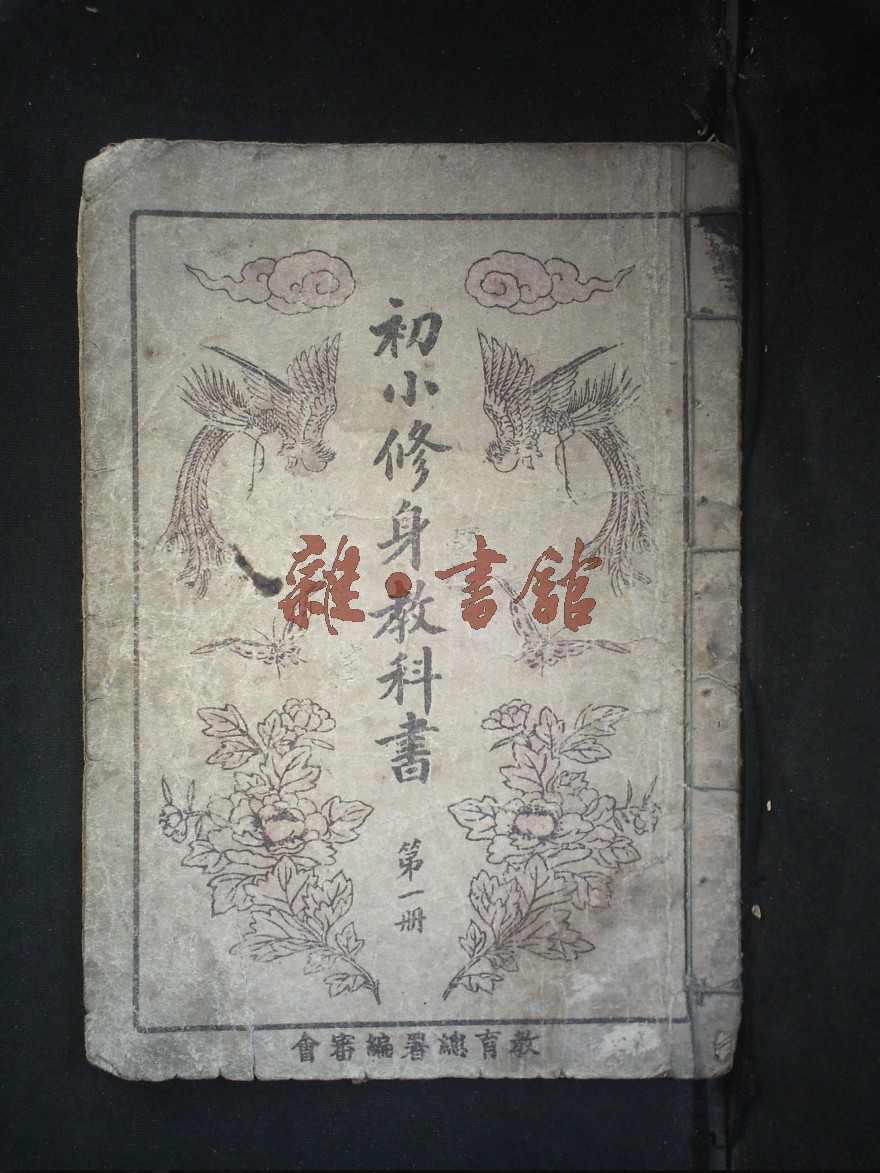 初小修身教科書
第一册
雜·書館
教育總署編審會